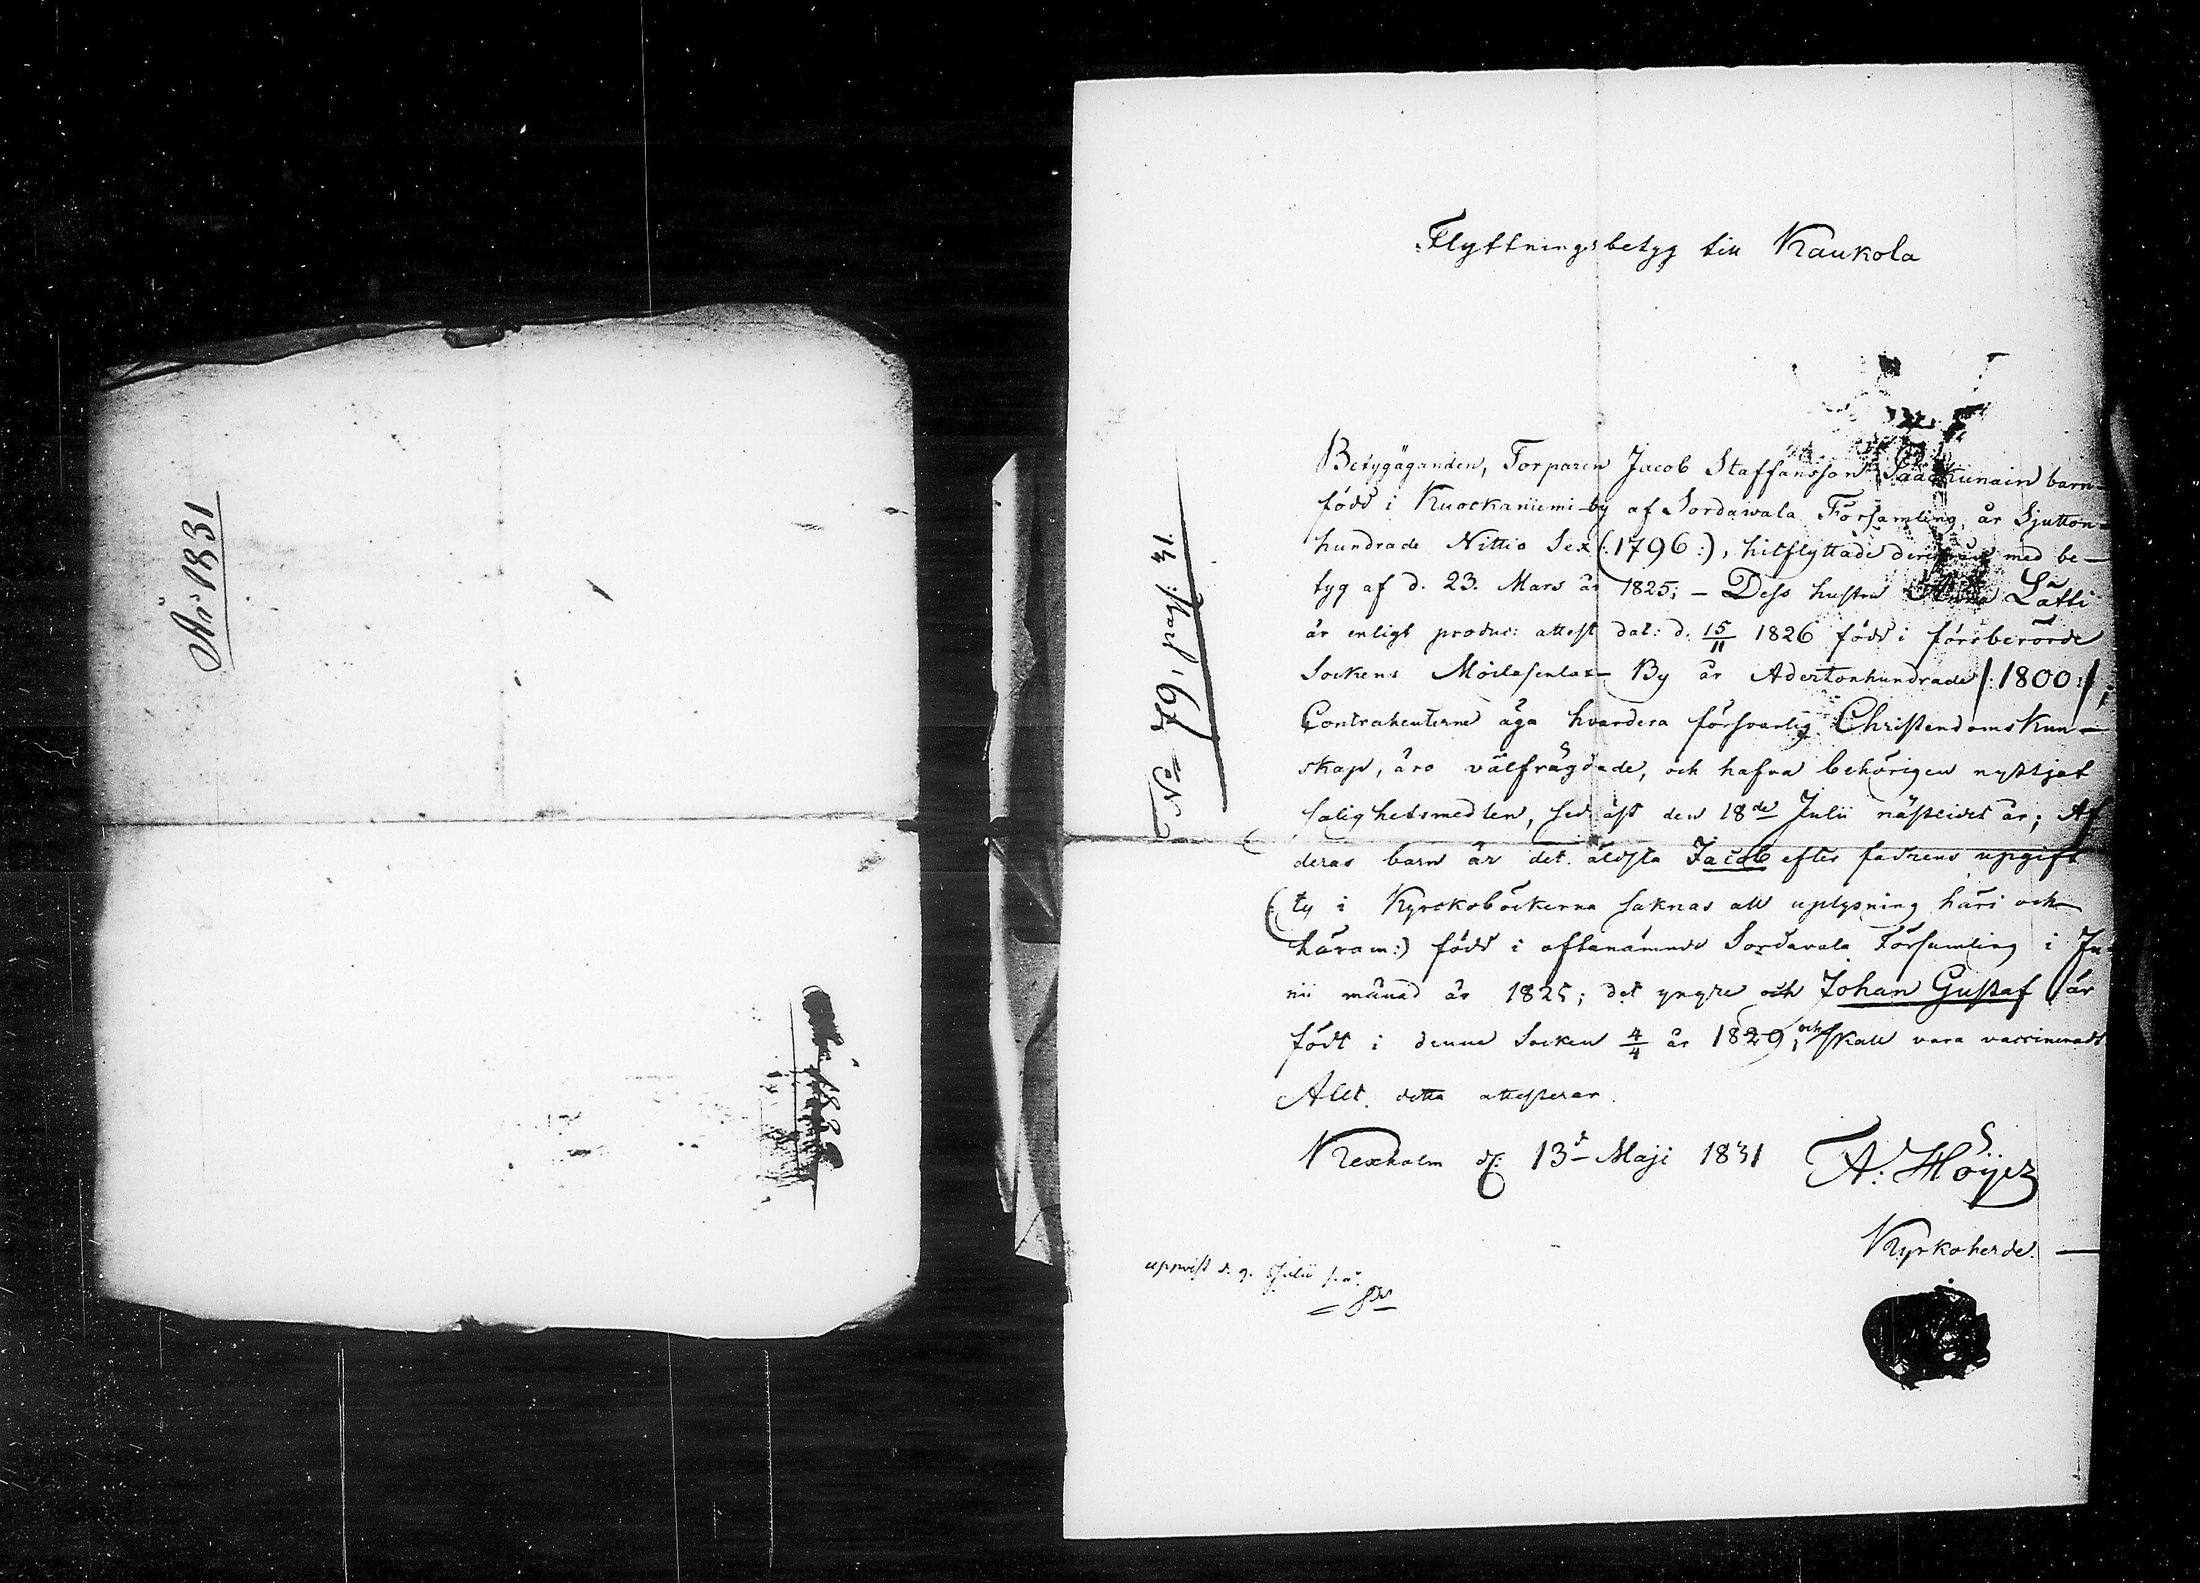 År 1831
No 79, pag: 31.
Flyttningsbetyg till Kaukola
Betygäganden, Torparen Jacob Staffansson barn-
född i Kuockaniemi by af Sordawala Församling, år Sjutton-
hundrade Nittio Sex (:1796:), hitflyttade derifrån med be-
tyg af d. 23. Mars år 1825; – Dess hustru Anna Lätti
är enligt produc: attest dat: d. 15/11 1826 född i förberörde
Sockens By år Adertonhundrade /:1800:/;
Contrahenterne äga hvardera försvarlig Christendoms Kun-
skap, äro välfrägdade, och hafva behörigen nyttjat
salighetsmedlen, sed: äst den 18de Julii nästledet år; Af
deras barn är det äldsta Jacob efter fadrens upgift
(: ty i Kyrckoböckerna saknas all uplysning häri och
härom:) född i oftanämnde Sordavala Församling i Ju-
nii månad år 1825; det yngre och Johan Gustaf är
födt i denne Socken 4/4 år 1829, och skall vara vaccineradt
Allt detta attesterar.
Kexholm d: 13de Maji 1831 A: Höijer
Kyrkoherde.
uppvist d. 9. Julii s. å.